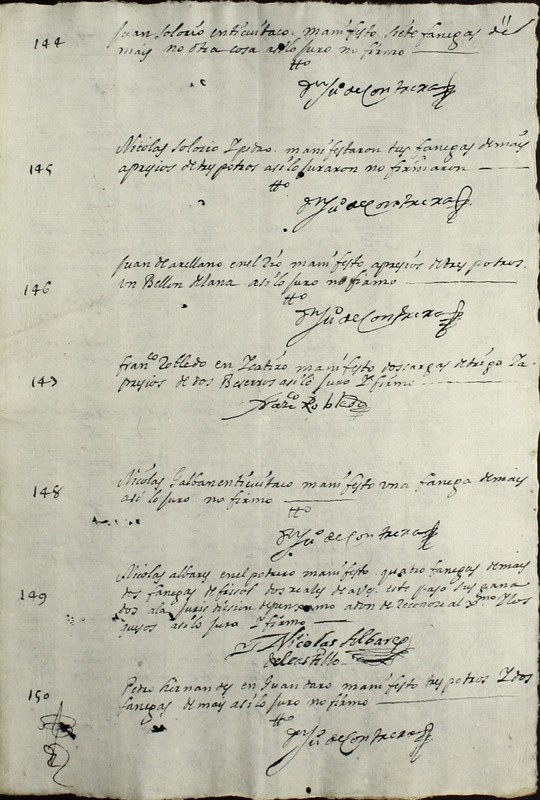 144 Juan solorio enticuitaco. manifesto siete fanegas de
mais no otra cosa asi lo juro no firmo
tto
Ju.º de Contreras
145 Nicolas solorio Y pedro. manifestaron tres fanegas de mais
apresios de tres potros asi lo juraron no firmaron
tto
Ju.º de Contreras
146 Juan de arellano en el Rio manifesto apresios de tres potros.
un Bellon de lana asi lo juro no firmo
tto
Ju.º de Contreras
147 fran.co Robledo en manifesto dos cargas de trigo Ya
presios de dos Beserros asi lo juro Y firmo
Robledo
148 Nicolas Galban enticuitaco manifesto una fanega de mais
asi lo juro no firmo
tto
Ju.º de Contreras
149 Nicolas albares en el potrero manifesto quatro fanegas de mais
dos fanegas de frisol dos reales de aves. este paso sus gana
dos ala juris dicsion de penxamo adonde Reconose al Y los
quesos asi lo juro Y firmo
Nicolas Albares
del castillo
150 Pedro hernandes en Guandaro manifesto tres potros Y dos
fanegas de mais asi lo juro no firmo
tto
Ju.º de Contreras